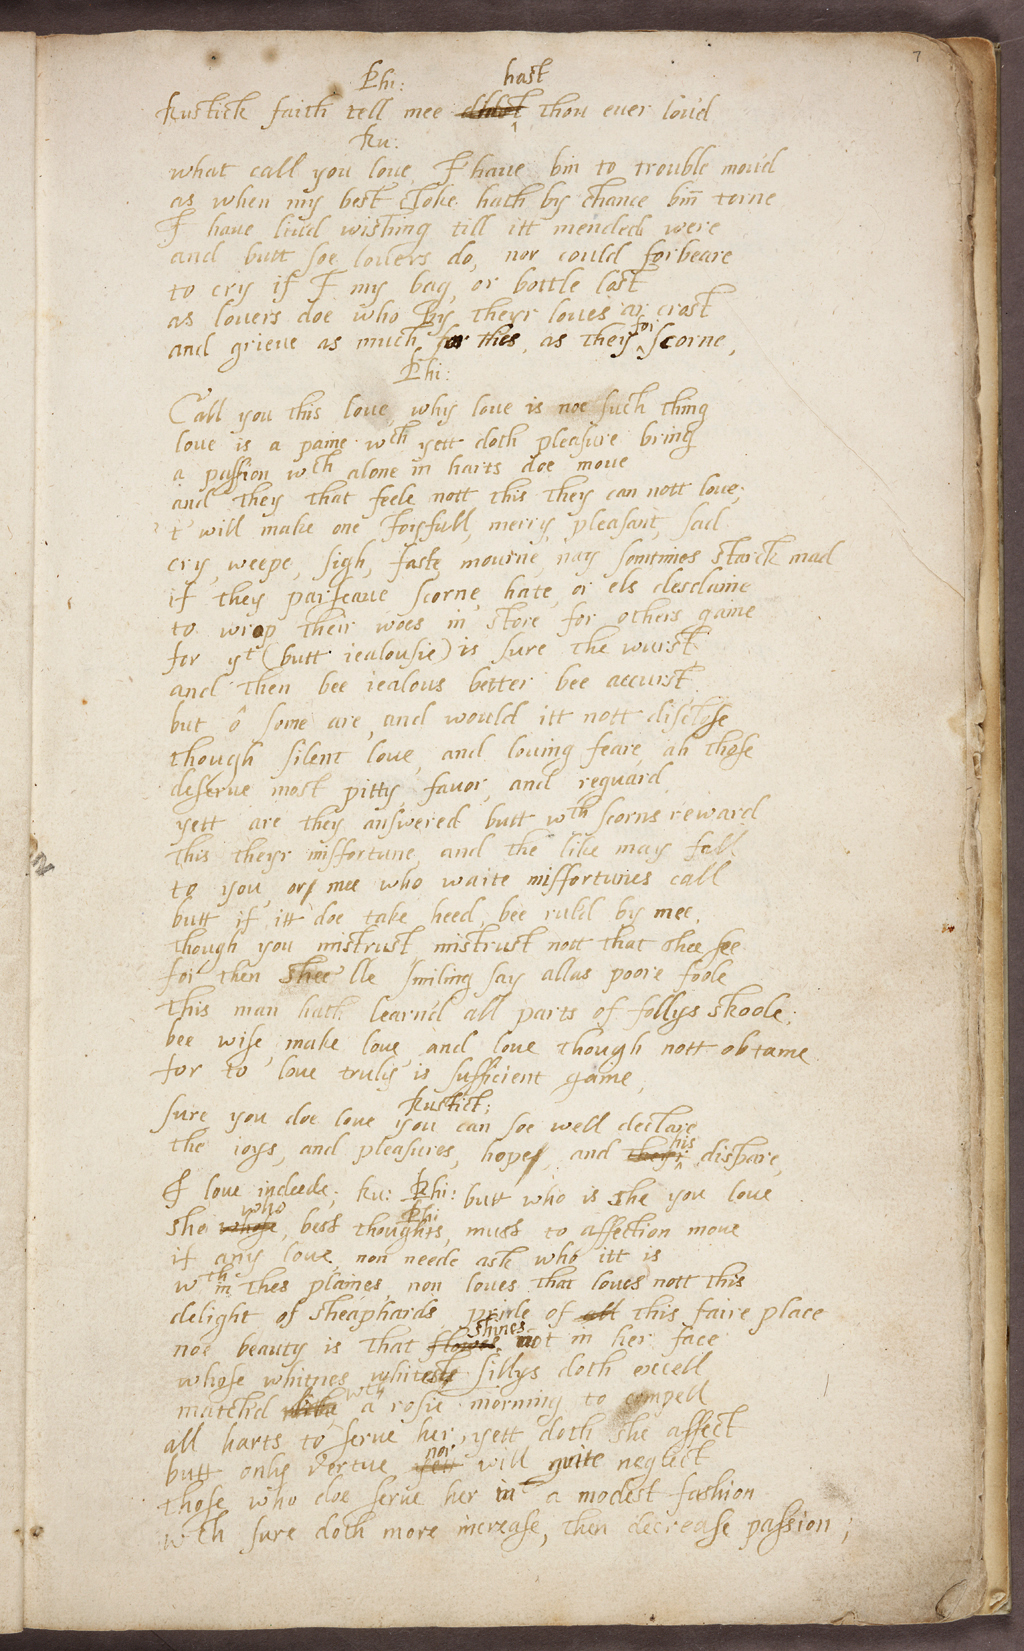 7
Phi: hast
Rustick faith tell mee didst thou ever lov'd
Ru:
what call you love, I have bin to trouble mov'd
as when my best cloke hath by chance bin torne
I have liv'd wishing till itt mended were
and butt soe lovers do, nor could forbeare
to cry if I my bag, or bottle lost
as lovers doe who by theyr loves ar crost
and grieve as much for thes, as they for scorne,
Phi:
Call you this love, why love is noe such thing
love is a paine wch yett doth pleasure bring
a passion wch alone in harts doe move
and they that feele nott this they can nott love;
t will make one Joyfull, merry, pleasant, sad
cry, weepe, sigh, faste, mourne, nay somtimes starck mad
if they parseave scorne, hate, or els desdaine
to wrap their woes in store for others gaine
for yt (butt iealousie) is sure the wurst
and then bee iealous better bee accurst
but ô some are, and would itt nott disclose
though silent love, and loving feare, ah those
deserve most pitty, favor, and reguard
yett are they answered butt wth scorns reward
this theyr missfortune, and the like may fall
to you, or mee who waite missfortunes call
butt if itt doe take heed, bee ruld by mee,
though you mistrust, mistrust nott that shee see
for then shee'lle smiling say allas poore foole
this man hath learn'd all parts of follys skoole;
bee wise, make love, and love though nott obtaine
for to love truly is sufficient gaine,
Rustick;
sure you doe love you can soe well declare
the ioys, and pleasures, hope, and theyr his dispare,
I love indeede; Ru: Phi: butt who is she you love
Phi
she whose who, best thoughts, must to affection move
if any love, non neede ask who itt is
wthin thes plaines, non loves that loves nott this
delight of sheaphards, pride of all this faire place
noe beauty is that flowes shines not in her face
whose whitnes whitest lillys doth excell
match'd wth a rosie morning to compell
all harts to serve her, yett doth she affect
butt only vertue nor will quite neglect
those who doe serve her in a modest fashion
wch sure doth more increase, then decrease passion;